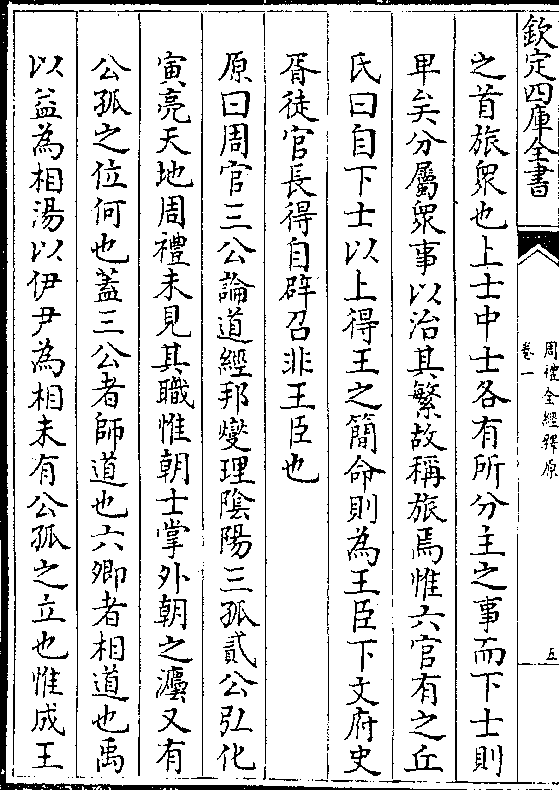 欽定四庫全書
周禮全經釋原
卷一
五
之首旅衆也上士中士各有所分主之事而下士則
卑矣分屬衆事以治其繁故稱旅焉惟六官有之丘
氏曰自下士以上得王之簡命則為王臣下文府史
胥徒官長得自辟召非王臣也
原曰周官三公論道經邦燮理陰陽三孤貳公弘化
寅亮天地周禮未見其職惟朝士掌外朝之灋又有
公孤之位何也蓋三公者師道也六卿者相道也禹
以益為相湯以伊尹為相未有公孤之立也惟成王